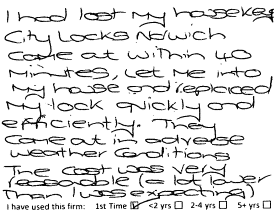 I had lost my housekeys
City Locks Norwich
came at within 40
minutes, Let me into
my house and replaced
my lock quickly and
efficiently. They
came at in adverse
weather conditions
The cost was very
reasonable (a lot lower
than I was expecting)
I have used this firm: 1st Time ☑ <2 yrs ☐ 2-4 yrs ☐ 5+ yrs ☐